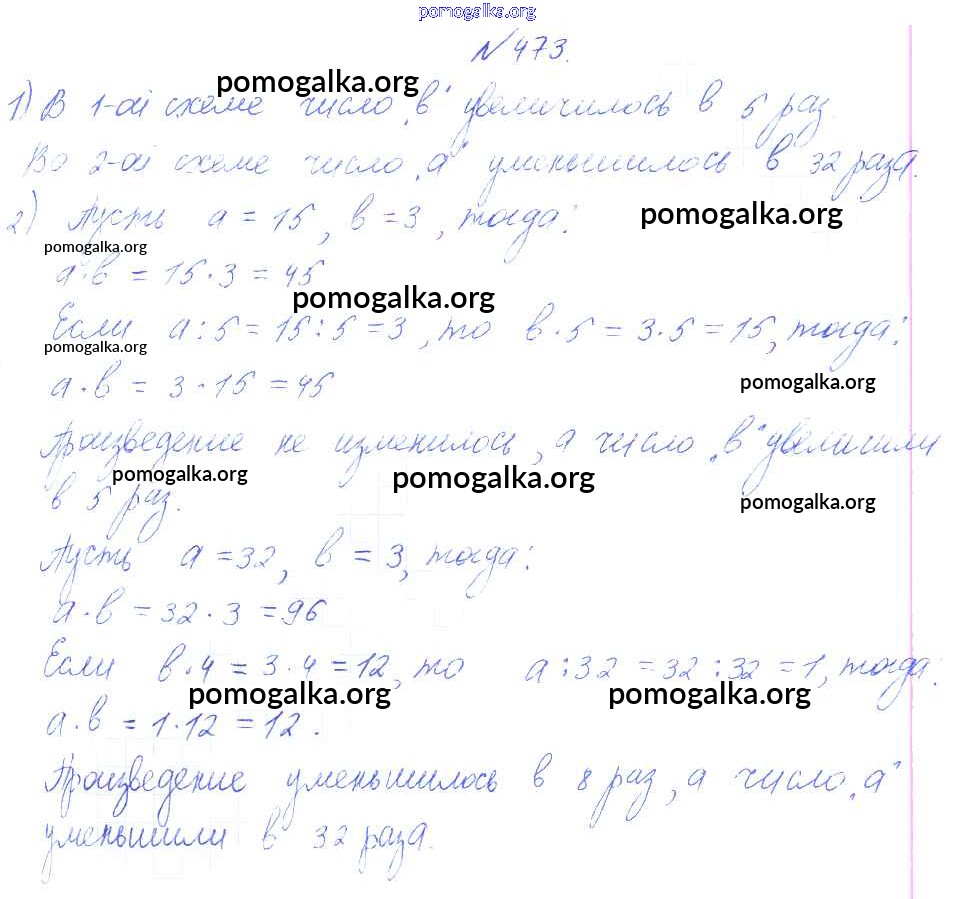 pomogalka.org
№ 473.
pomogalka.org
1) В 1-ой схеме число „в“ увеличилось в 5 раз.
Во 2-ой схеме число „а“ уменьшилось в 32 раза.
2) Пусть а = 15, в = 3, тогда:
pomogalka.org
pomogalka.org
а · в = 15 · 3 = 45
pomogalka.org
Если а : 5 = 15 : 5 = 3, то в · 5 = 3 · 5 = 15, тогда:
pomogalka.org
а · в = 3 · 15 = 45
pomogalka.org
Произведение не изменилось, а число „в“ увеличили
pomogalka.org
pomogalka.org
в 5 раз.
pomogalka.org
Пусть а = 32, в = 3, тогда:
а · в = 32 · 3 = 96
Если в · 4 = 3 · 4 = 12, то а : 32 = 32 : 32 = 1, тогда:
pomogalka.org
pomogalka.org
а · в = 1 · 12 = 12.
Произведение уменьшилось в 8 раз, а число „а“
уменьшили в 32 раза.